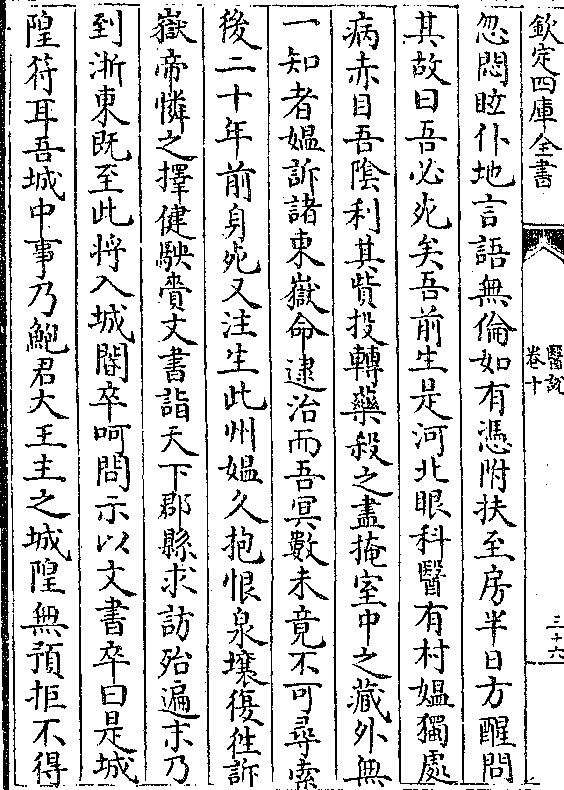 欽定四庫全書
醫說
卷十
三十六
忽悶眩仆地言語無倫如有憑附扶至房半日方醒問
其故曰吾必死矣吾前生是河北眼科醫有村媼獨處
病赤目吾陰利其貲投轉藥殺之盡掩室中之藏外無
一知者媼訴諸東嶽命逮治而吾冥數未竟不可尋索
後二十年前身死又注生此州媼久抱恨泉壤復徃訴
嶽帝憐之擇健駛賫文書詣天下郡縣求訪殆遍末乃
到浙東既至此将入城閽卒呵問示以文書卒曰是城
隍符耳吾城中事乃鮑君大王主之城隍無預拒不得